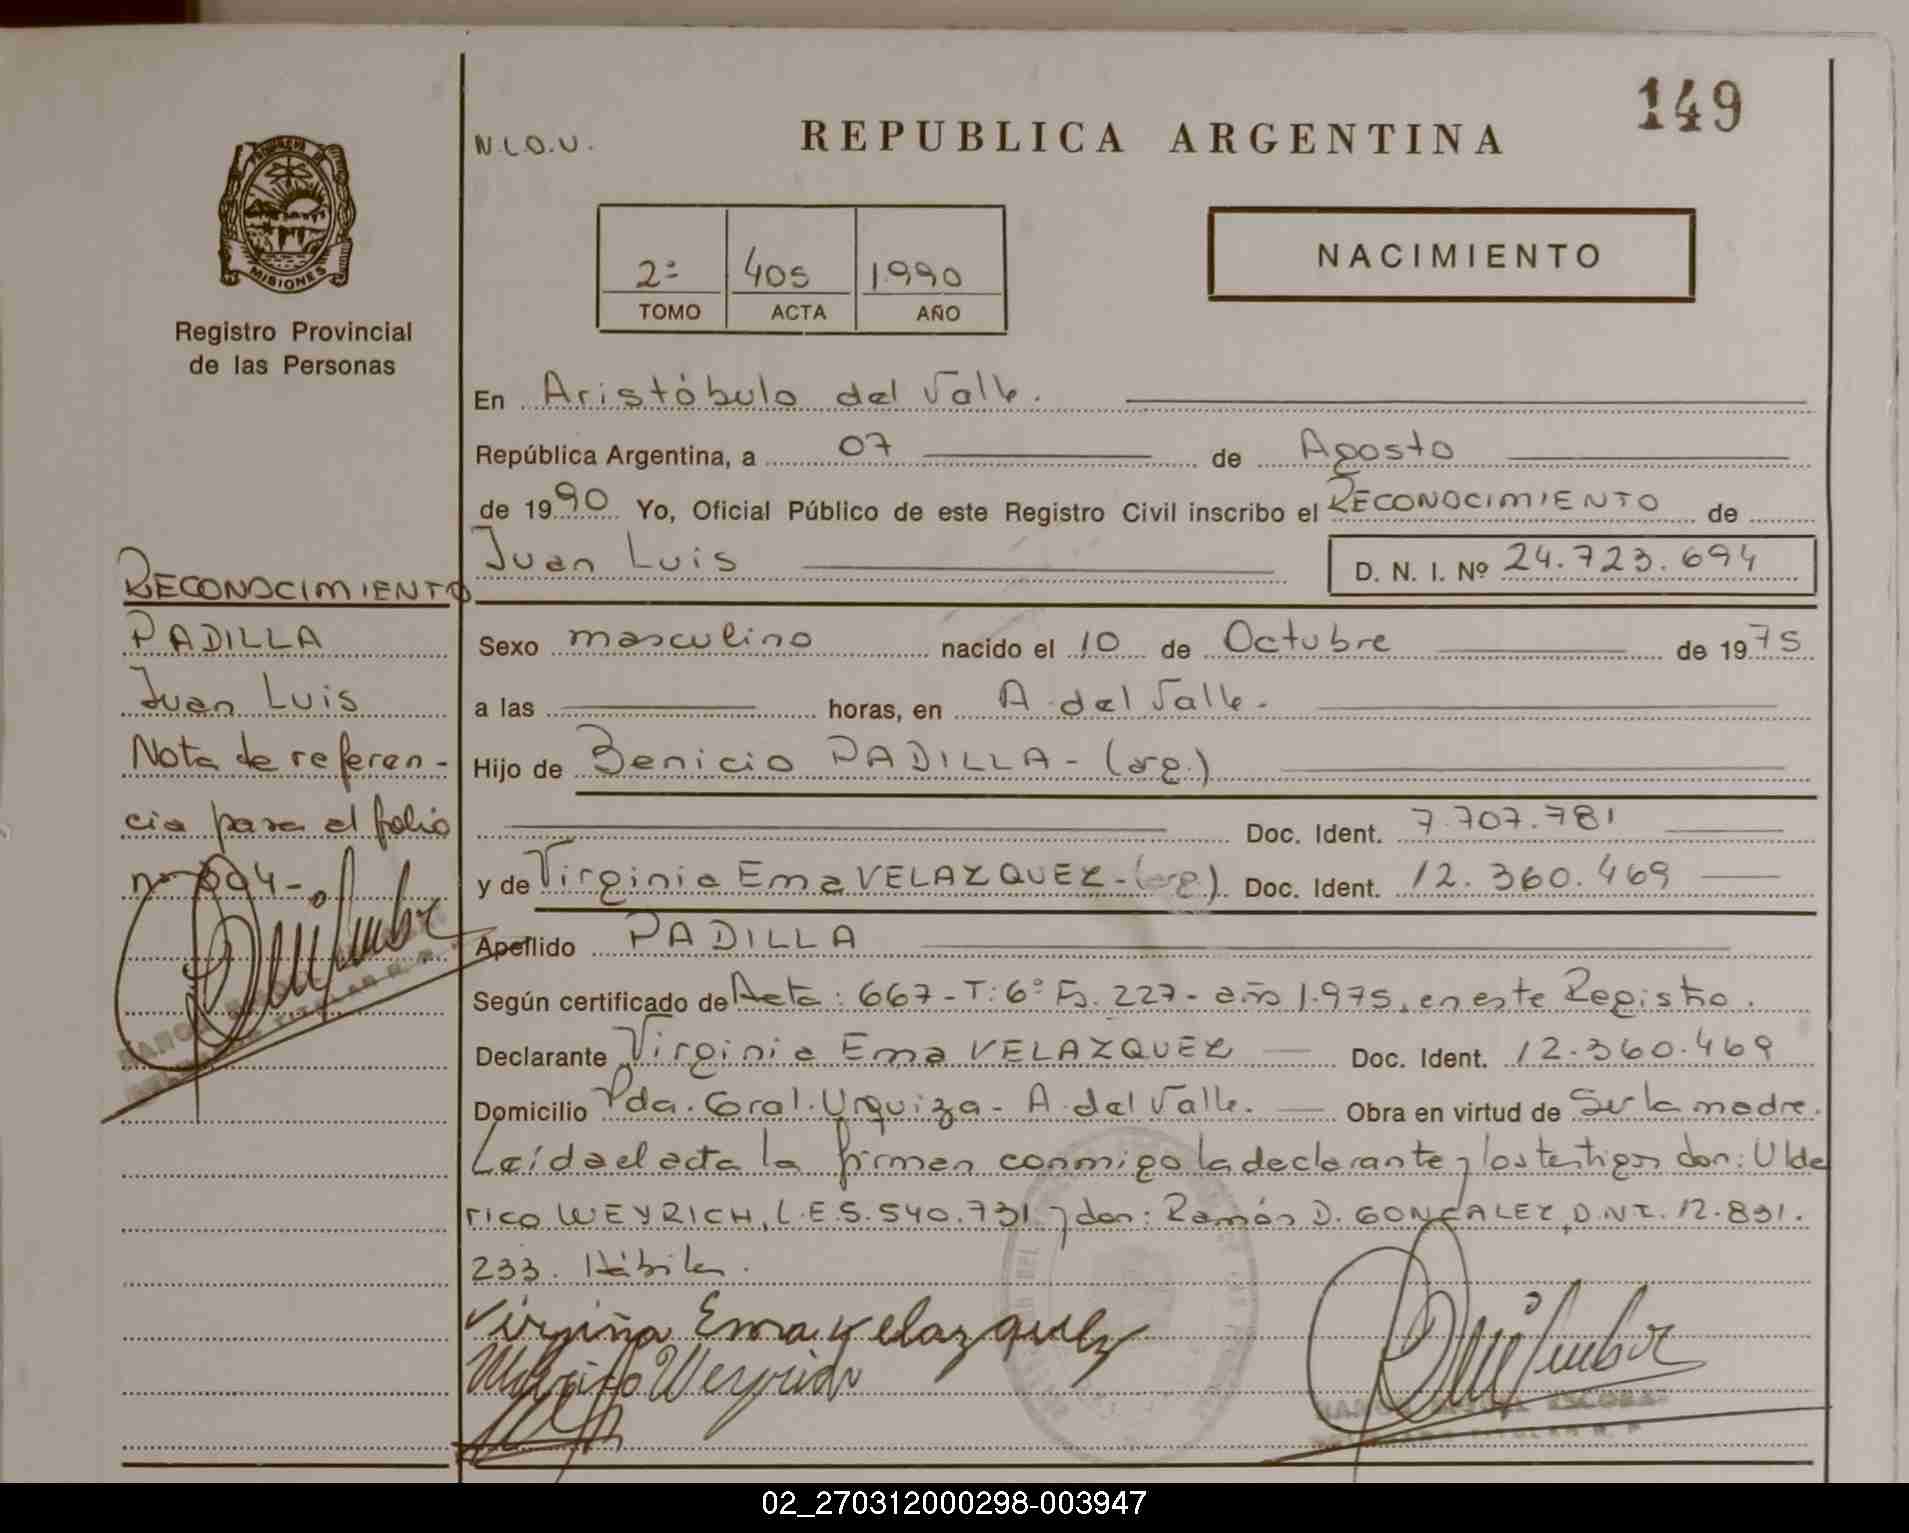 149
N.I.O.U.
REPUBLICA ARGENTINA
MISIONES
Registro Provincial
de las Personas
2º 405 1.990
TOMO ACTA AÑO
NACIMIENTO
En Aristóbulo del Valle.
República Argentina, a 07 de Agosto
de 1990 Yo, Oficial Público de este Registro Civil inscribo el RECONOCIMIENTO de
Juan Luis D. N. I. Nº 24.723.694
Sexo masculino nacido el 10 de Octubre de 1975
a las horas, en A. del Valle.
Hijo de Benicio PADILLA - (arg.)
Doc. Ident. 7.707.781
y de Virginia Ema VELAZQUEZ - (arg.). Doc. Ident. 12.360.469
Apellido PADILLA
Según certificado de Acta: 667 - T: 6º Fs. 227 - año 1.975, en este Registro.
Declarante Virginia Ema VELAZQUEZ Doc. Ident. 12.360.469
Domicilio Pda. Gral. Urquiza - A. del Valle. Obra en virtud de Ser la madre.
Leída el acta la firman conmigo la declarante y los testigos don: Ulde
rico WEYRICH, L.E. 5.540.731 y don: Ramón D. GONZALEZ, D.N.I. 12.831.
233. Hábiles.
Virginia Ema Velazquez
Ulderico Weyrich
RAMON MIGUEL ESCOBAR
RECONOCIMIENTO
PADILLA
Juan Luis
Nota de referen-
cia para el folio
nº 004-
02_270312000298-003947